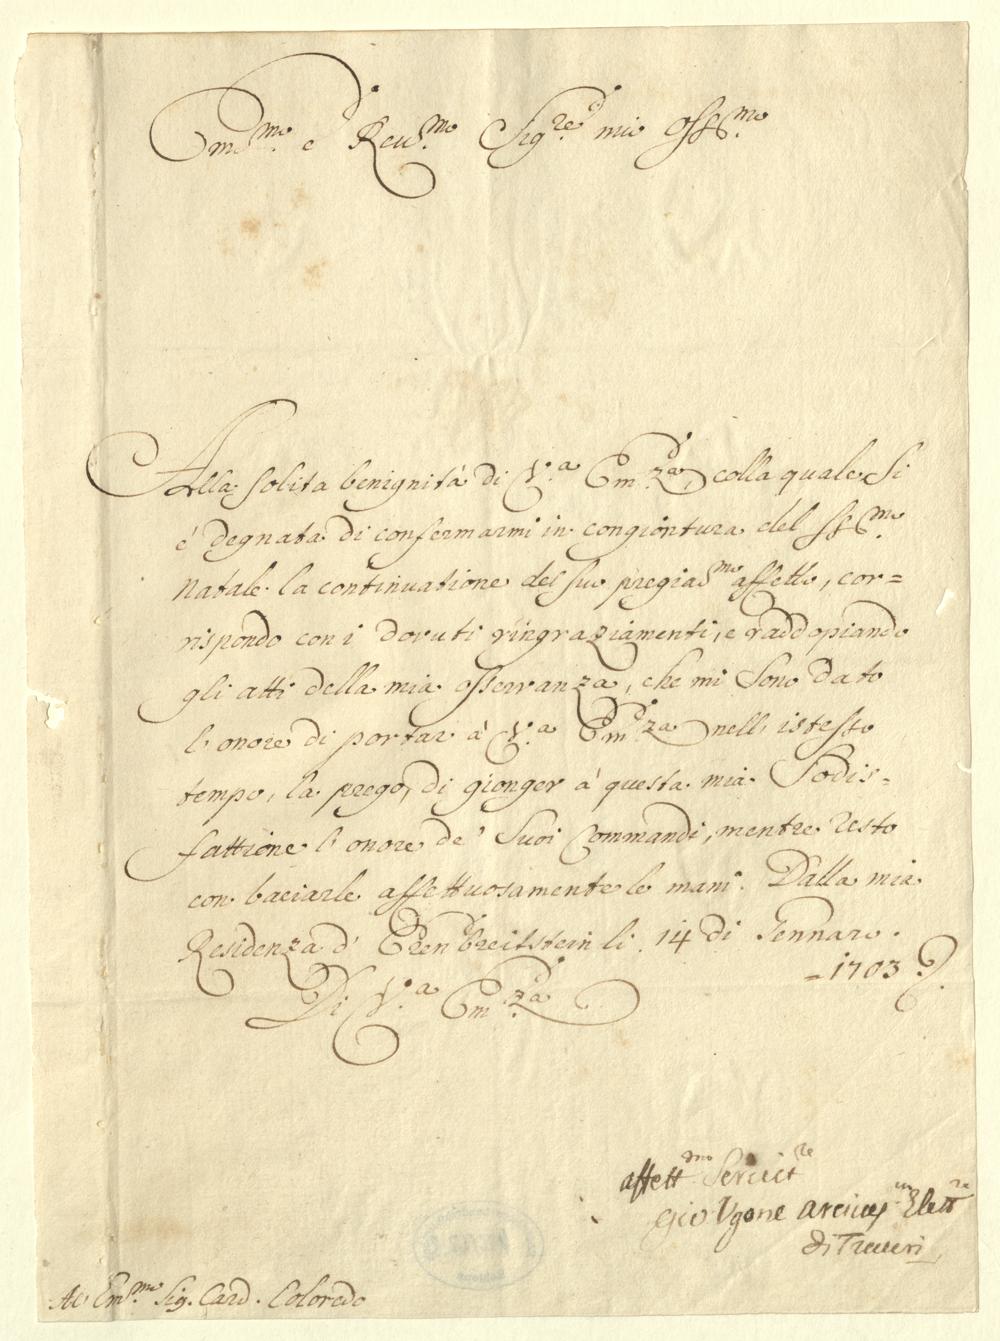 Em.mo e Rev.mo Sig.re mio oss.mo
Alla solita benignità di V.a Em.za, colla quale si
è degnata di confermarmi in congiontura del SS.mo
Natale la continuatione del suo pregiad.mo affetto, cor=
rispondo con i dovuti ringraziamenti, e raddopiando
gli atti della mia osservanza, che mi sono dato
l'onore di portar à V.a Em.za nell'istesso
tempo, la prego, di gionger à questa mia Sodis=
fattione l'onore de' Suoi Commandi, mentre resto
con baciarle affettuosamente le mani. Dalla mia
Residenza d'Erenbreitstein li 14 di Gennaro.
=1703
Di V.a Em.za
affett.mo Servit.re
Gio Ugone Arcives Elett.re
di Treveri
Al Em.mo Sig. Card. Coloredo